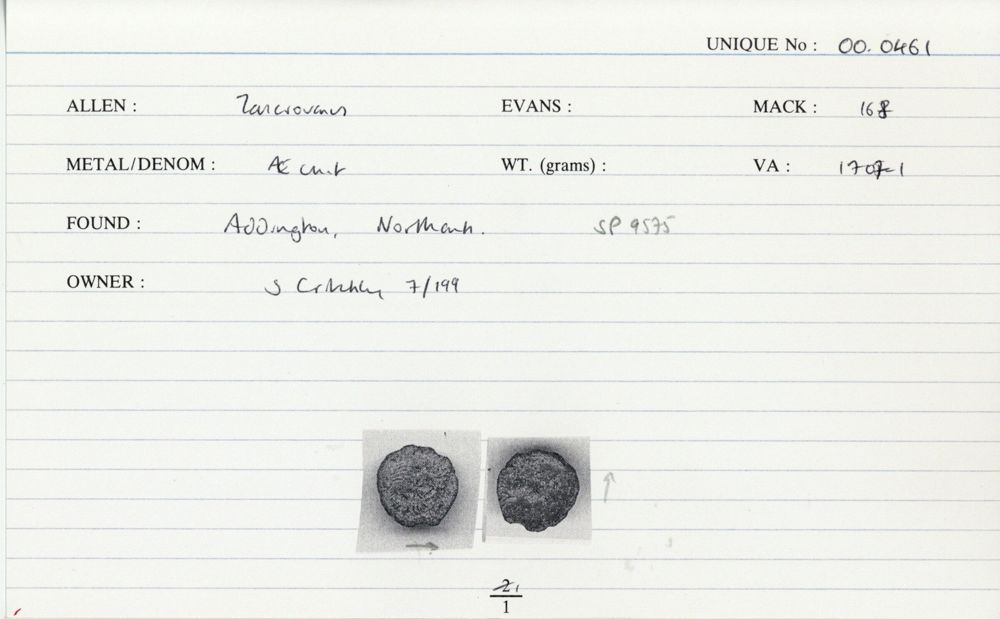 UNIQUE No : 00.0461
ALLEN : Tasciovanus EVANS : MACK : 168
METAL/DENOM : Æ unit WT. (grams) : VA : 1707-1
FOUND : Addington, Northants. SP 9575
OWNER : S Critchley 7/199
2,
1